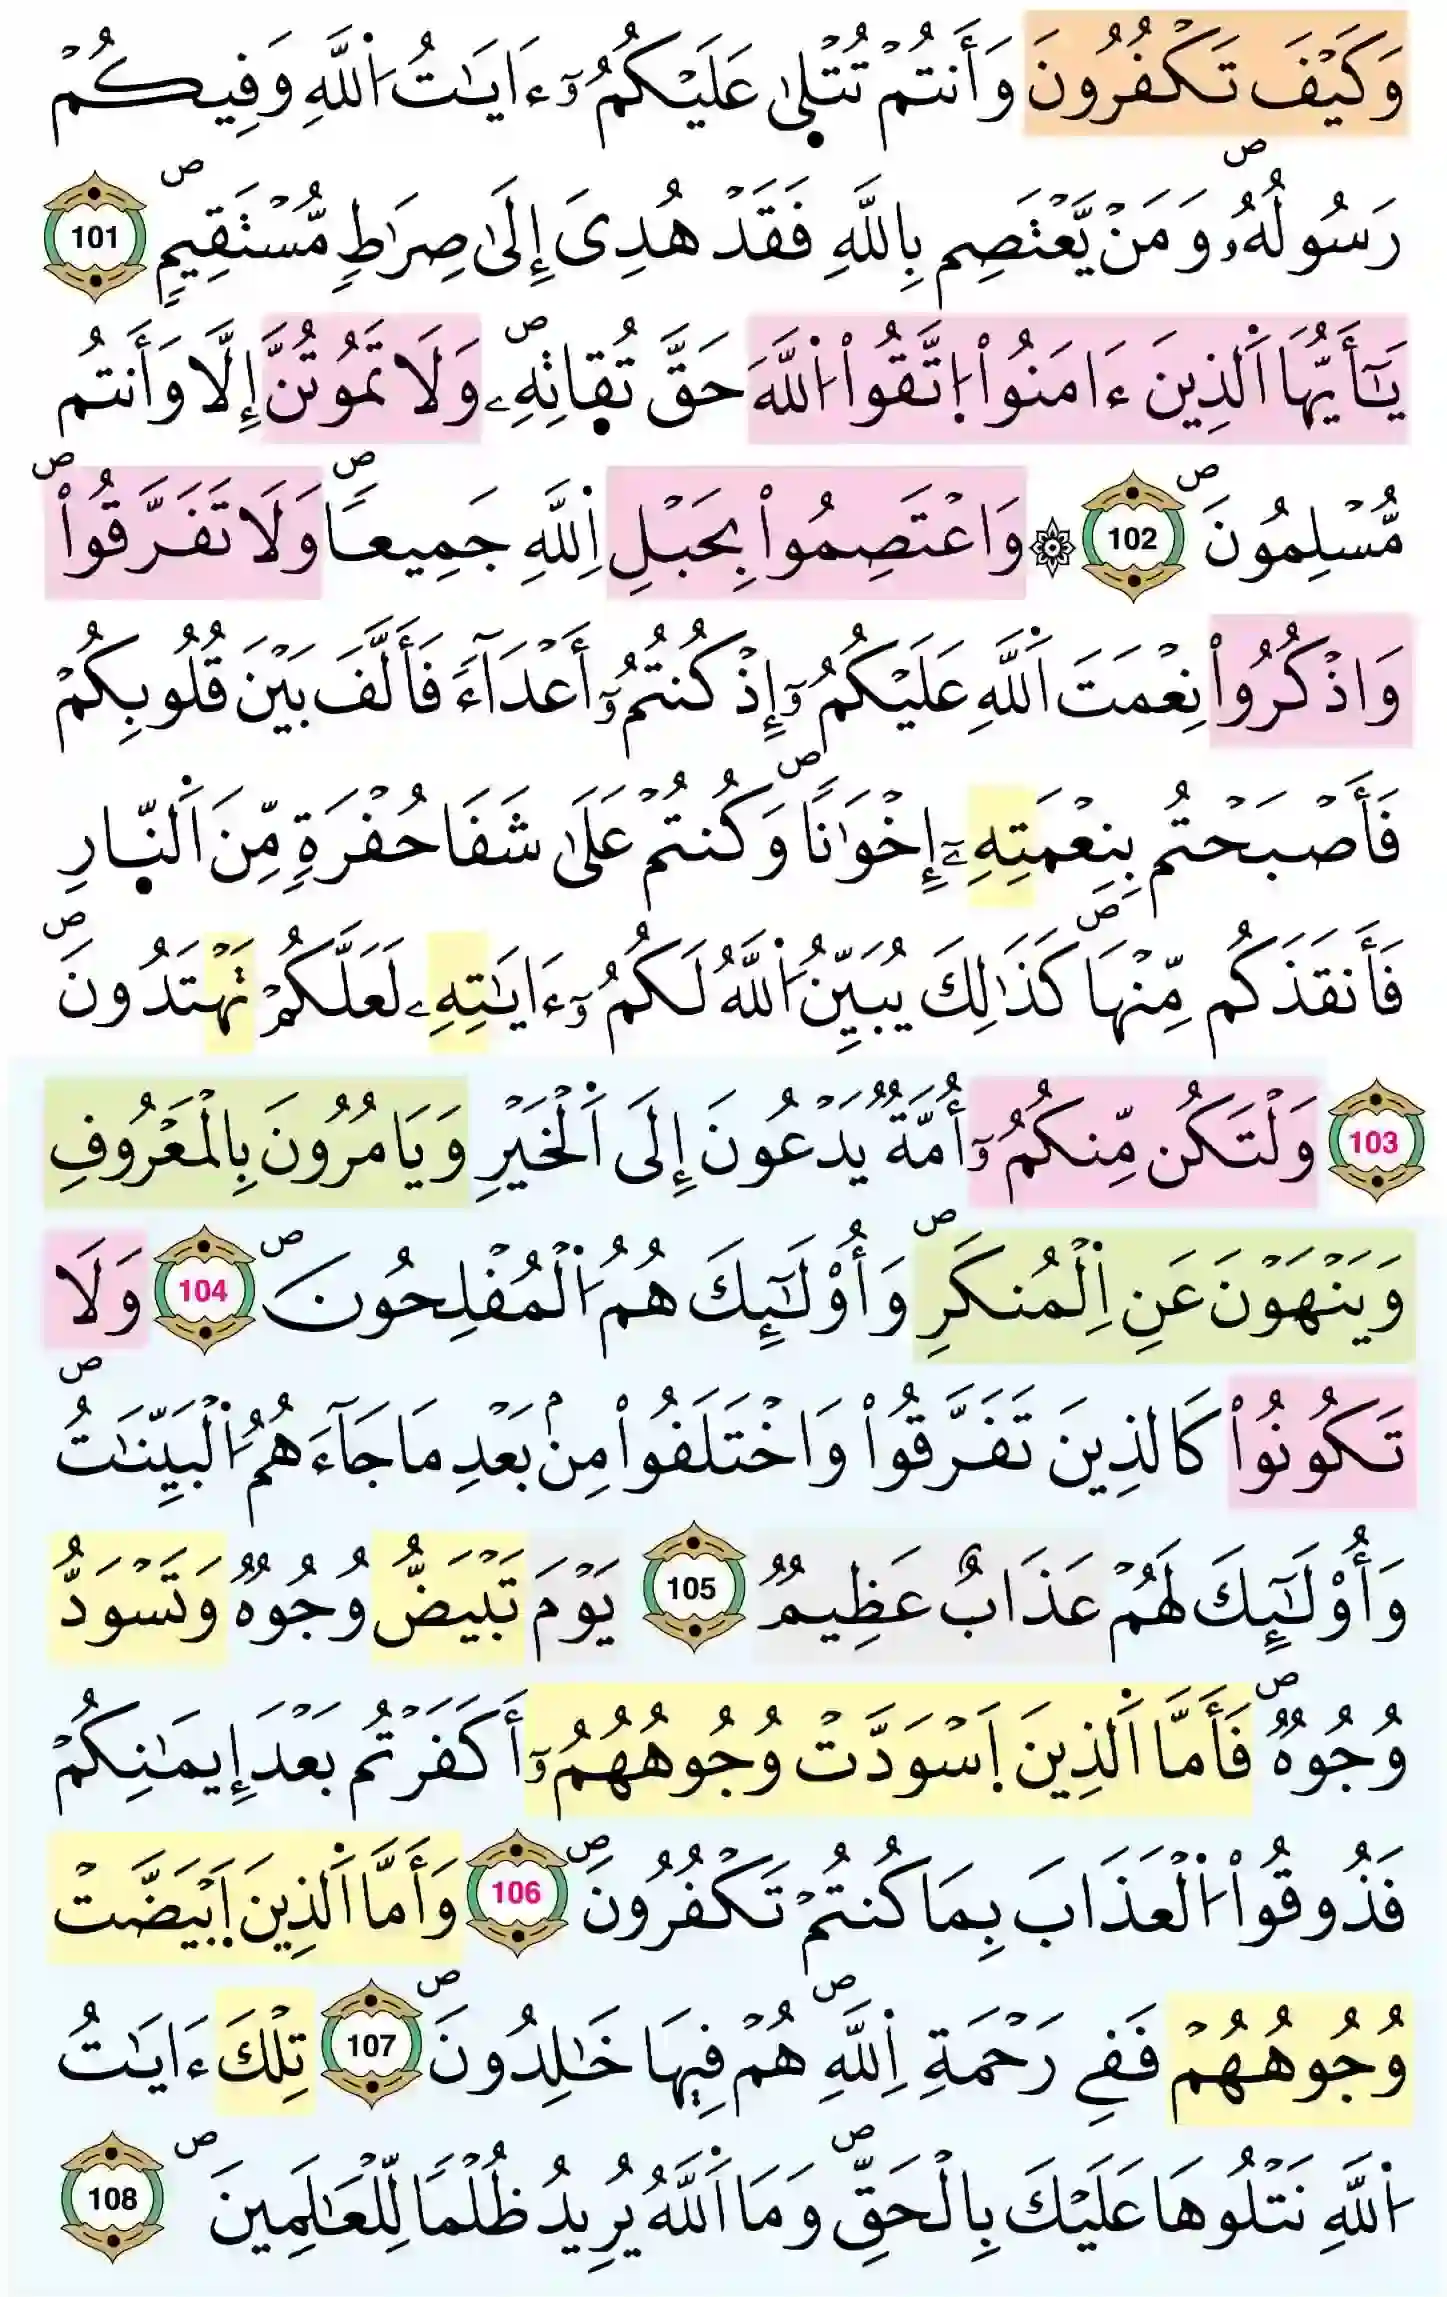 وَكَيْفَ تَكْفُرُونَ وَأَنتُمْ تُتْلَىٰ عَلَيْكُمُۥٓ ءَايَٰتُ اُ۬للَّهِ وَفِيكُمْ
رَسُولُهُۥۖ وَمَنْ يَّعْتَصِم بِاللَّهِ فَقَدْ هُدِىَ إِلَىٰ صِرَٰطٖ مُّسْتَقِيمٖۖ 101
يَٰٓأَيُّهَا اَ۬لَّذِينَ ءَامَنُواْ اُ۪تَّقُواْ اُ۬للَّهَ حَقَّ تُقَاتِهِۦۖ وَلَا تَمُوتُنَّ إِلَّا وَأَنتُم
مُّسْلِمُونَۖ 102 ۞ وَاعْتَصِمُواْ بِحَبْلِ اِ۬للَّهِ جَمِيعاٗۖ وَلَا تَفَرَّقُواْۖ
وَاذْكُرُواْ نِعْمَتَ اَ۬للَّهِ عَلَيْكُمُۥٓ إِذْ كُنتُمُۥٓ أَعْدَآءٗ فَأَلَّفَ بَيْنَ قُلُوبِكُمْ
فَأَصْبَحْتُم بِنِعْمَتِهِۦٓ إِخْوَٰناٗۖ وَكُنتُمْ عَلَىٰ شَفَا حُفْرَةٖ مِّنَ اَ۬لنّ۪ارِ
فَأَنقَذَكُم مِّنْهَاۖ كَذَٰلِكَ يُبَيِّنُ اُ۬للَّهُ لَكُمُۥٓ ءَايَٰتِهِۦ لَعَلَّكُمْ تَهْتَدُونَۖ
103 وَلْتَكُن مِّنكُمُۥٓ أُمَّةٞ يَدْعُونَ إِلَى اَ۬لْخَيْرِ وَيَامُرُونَ بِالْمَعْرُوفِ
وَيَنْهَوْنَ عَنِ اِ۬لْمُنكَرِۖ وَأُوْلَٰٓئِكَ هُمُ اُ۬لْمُفْلِحُونَۖ 104 وَلَا
تَكُونُواْ كَالذِينَ تَفَرَّقُواْ وَاخْتَلَفُواْ مِنۢ بَعْدِ مَا جَآءَهُمُ اُ۬لْبَيِّنَٰتُۖ
وَأُوْلَٰٓئِكَ لَهُمْ عَذَابٌ عَظِيمٞ 105 يَوْمَ تَبْيَضُّ وُجُوهٞ وَتَسْوَدُّ
وُجُوهٞۖ فَأَمَّا اَ۬لذِينَ اَ۪سْوَدَّتْ وُجُوهُهُمُۥٓ أَكَفَرْتُم بَعْدَ إِيمَٰنِكُمْ
فَذُوقُواْ اُ۬لْعَذَابَ بِمَا كُنتُمْ تَكْفُرُونَۖ 106 وَأَمَّا اَ۬لذِينَ اَ۪بْيَضَّتْ
وُجُوهُهُمْ فَفِے رَحْمَةِ اِ۬للَّهِۖ هُمْ فِيهَا خَٰلِدُونَۖ 107 تِلْكَ ءَايَٰتُ
اُ۬للَّهِ نَتْلُوهَا عَلَيْكَ بِالْحَقِّۖ وَمَا اَ۬للَّهُ يُرِيدُ ظُلْماٗ لِّلْعَٰلَمِينَۖ 108